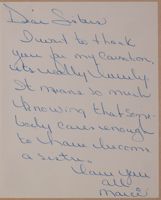 Dear Sisters
I want to thank
you for my carnation,
it's really lovely.
It means so much
knowing that some-
body cares enough
to have become
a sister.
I love you
all